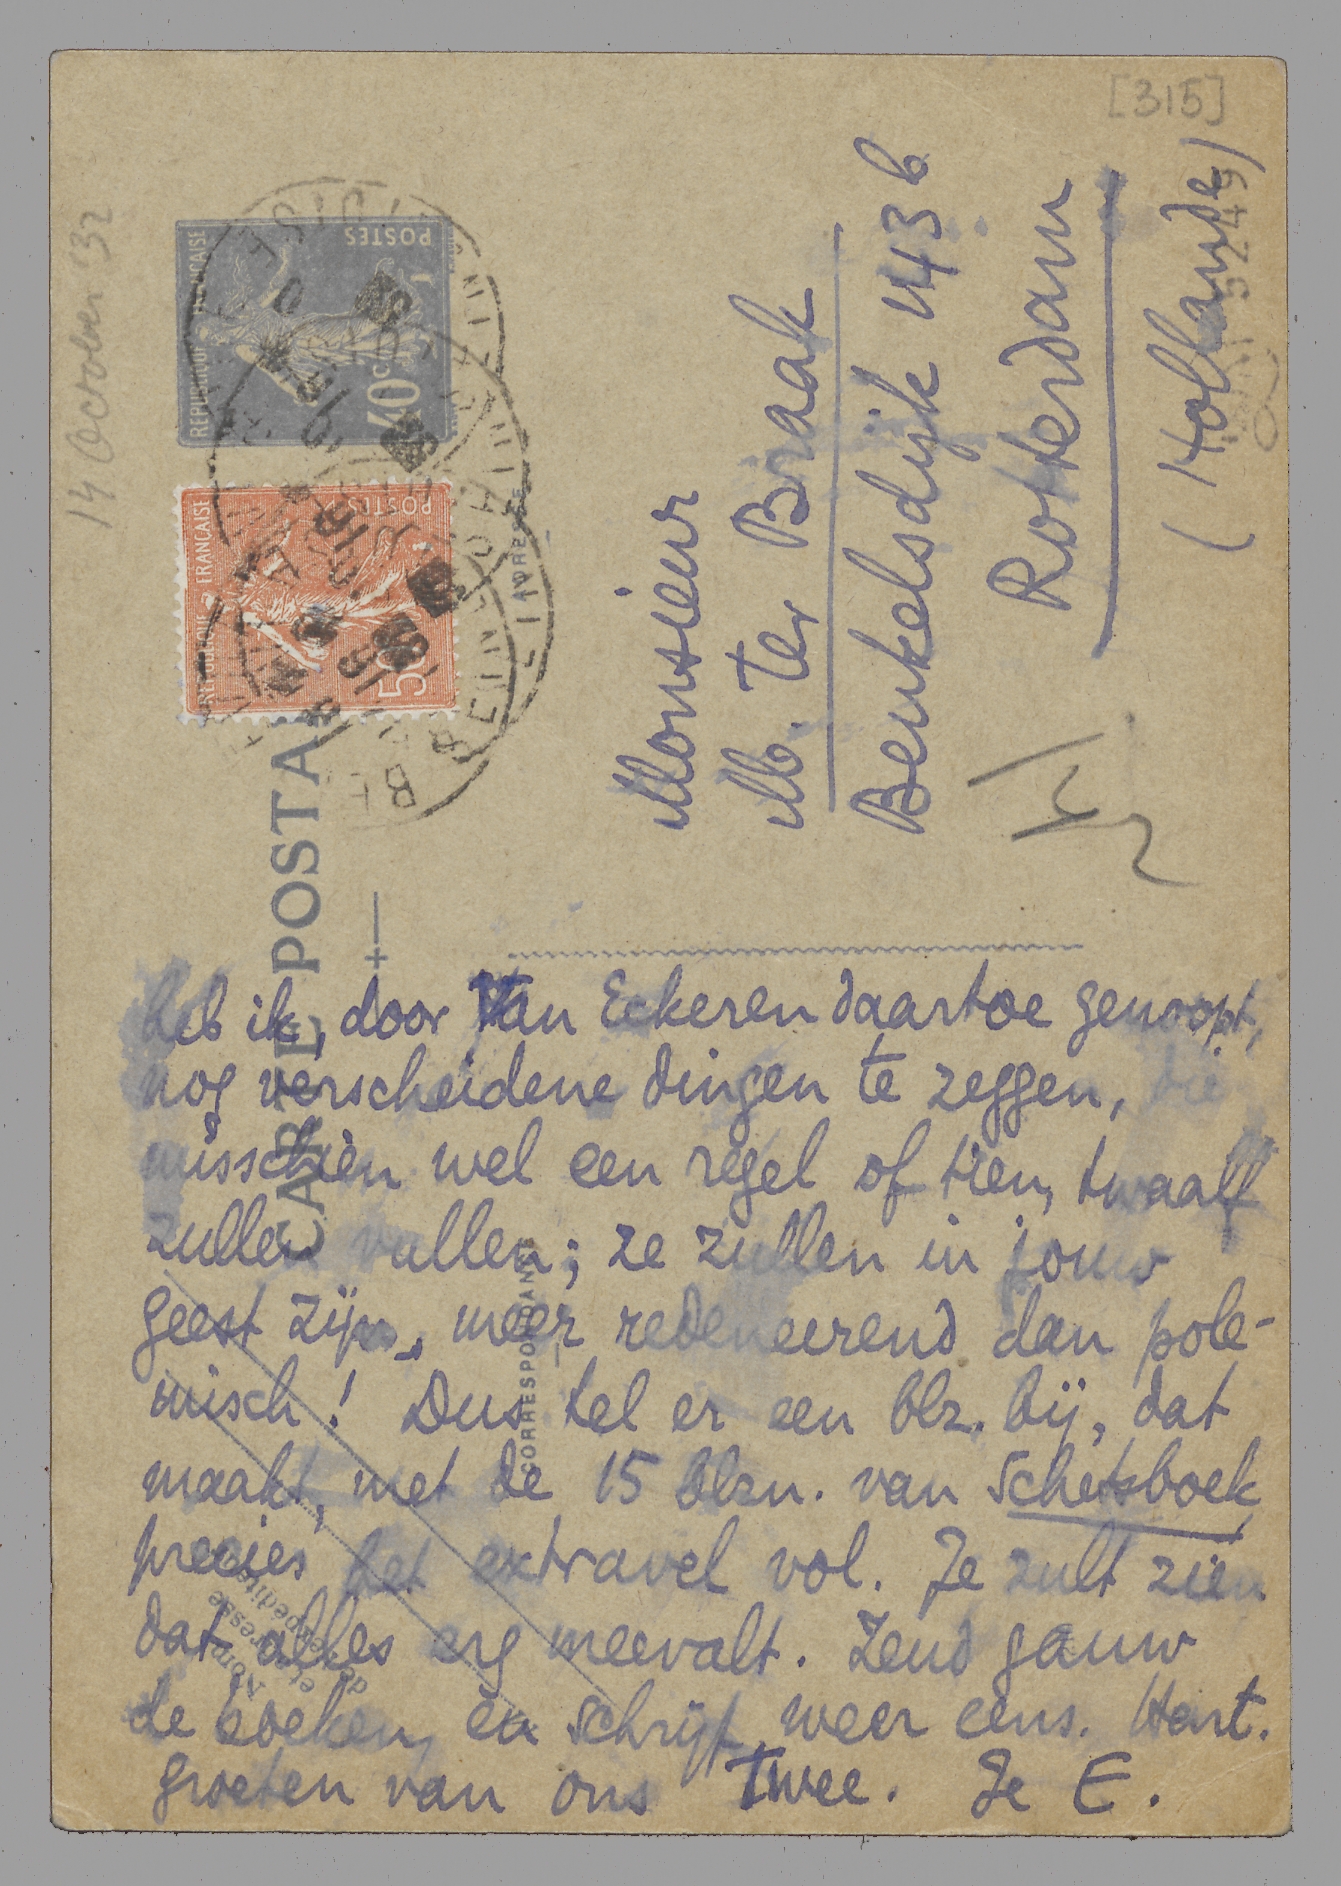 [315]
14 October '32
RÉPUBLIQUE FRANÇAISE
POSTES
40c.
RÉPUBLIQUE FRANÇAISE
POSTES
50
CARTE POSTALE
ADRESSE
Monsieur
M. ter Braak
Beukelsdijk 143 b
Rotterdam
(Hollande)
CORRESPONDANCE
Nom, adresse
et
de l'expéditeur
heb ik, door Van Eckeren daartoe genoopt,
nog verscheidene dingen te zeggen, die
misschien wel een regel of tien, twaalf
zullen vullen; ze zullen in jouw
geest zijn, meer redeneerend dan pole-
misch! Dus tel er een blz. bij, dat
maakt, met de 15 blzn. van Schetsboek
precies het extravel vol. Je zult zien
dat alles erg meevalt. Zend gauw
de boeken, en schrijf weer eens. Hart.
groeten van ons twee. Je E.